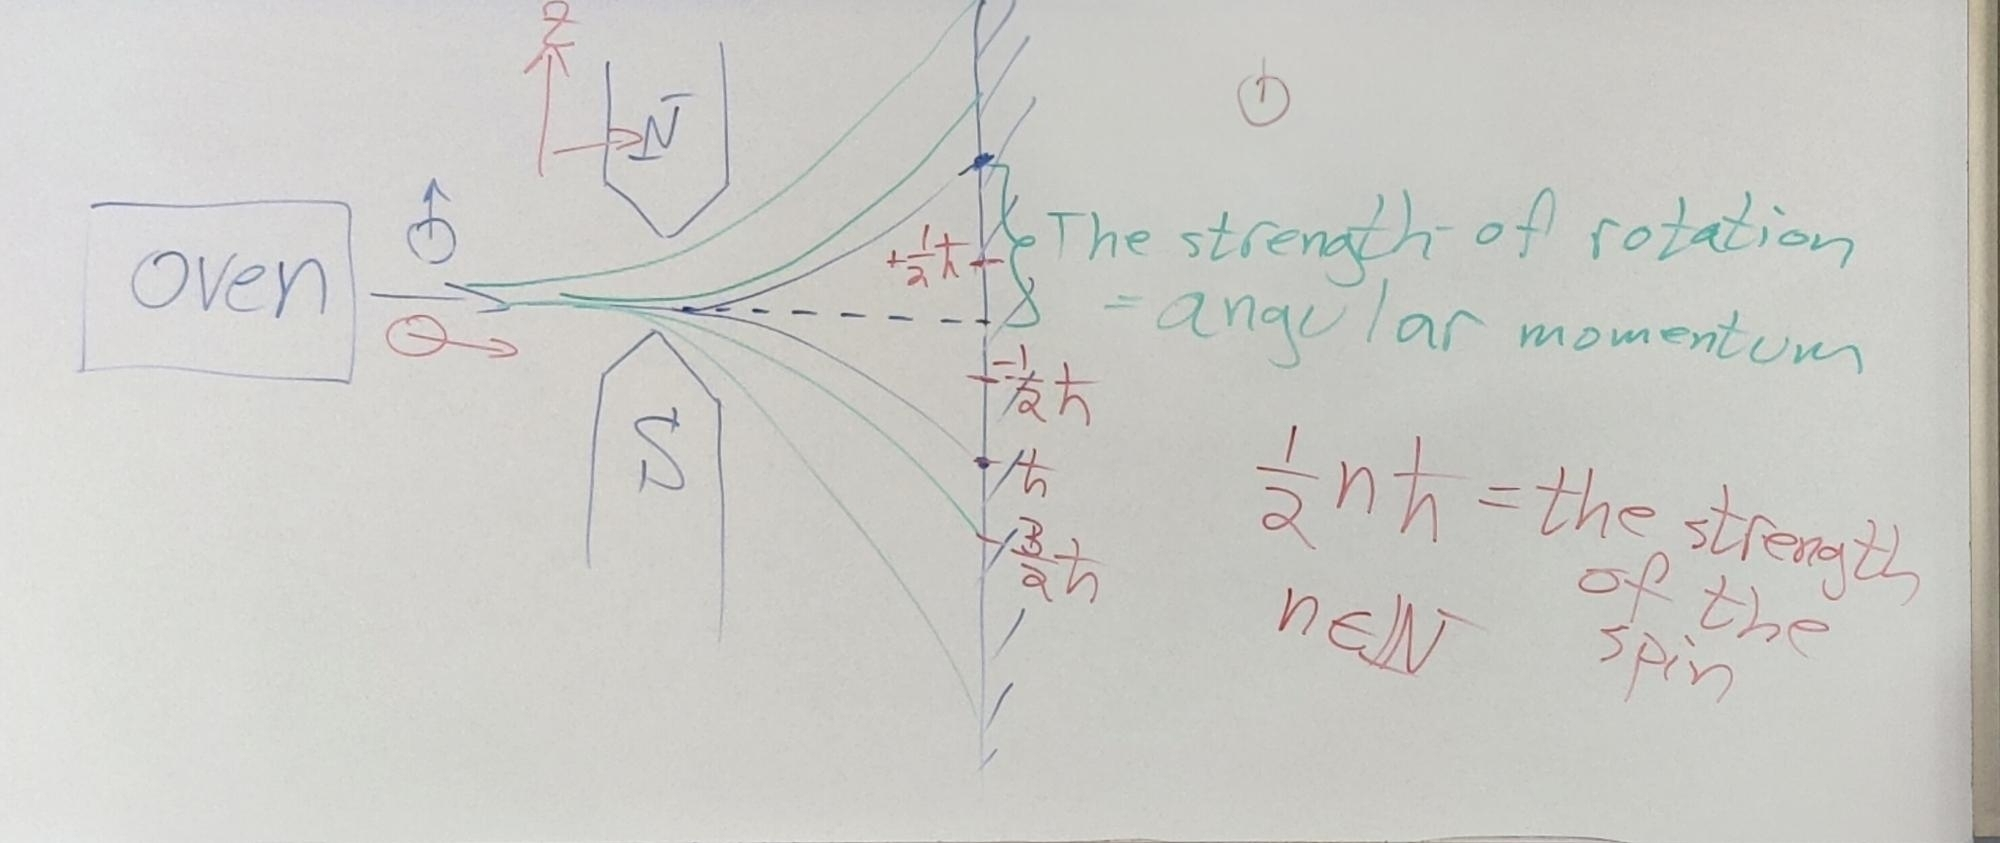 Z
N
oven
+1/2 ħ
The strength of rotation
= angular momentum
-1/2 ħ
S
ħ
3/2 ħ
1/2 n ħ = the strength
of the
spin
n∈ℕ